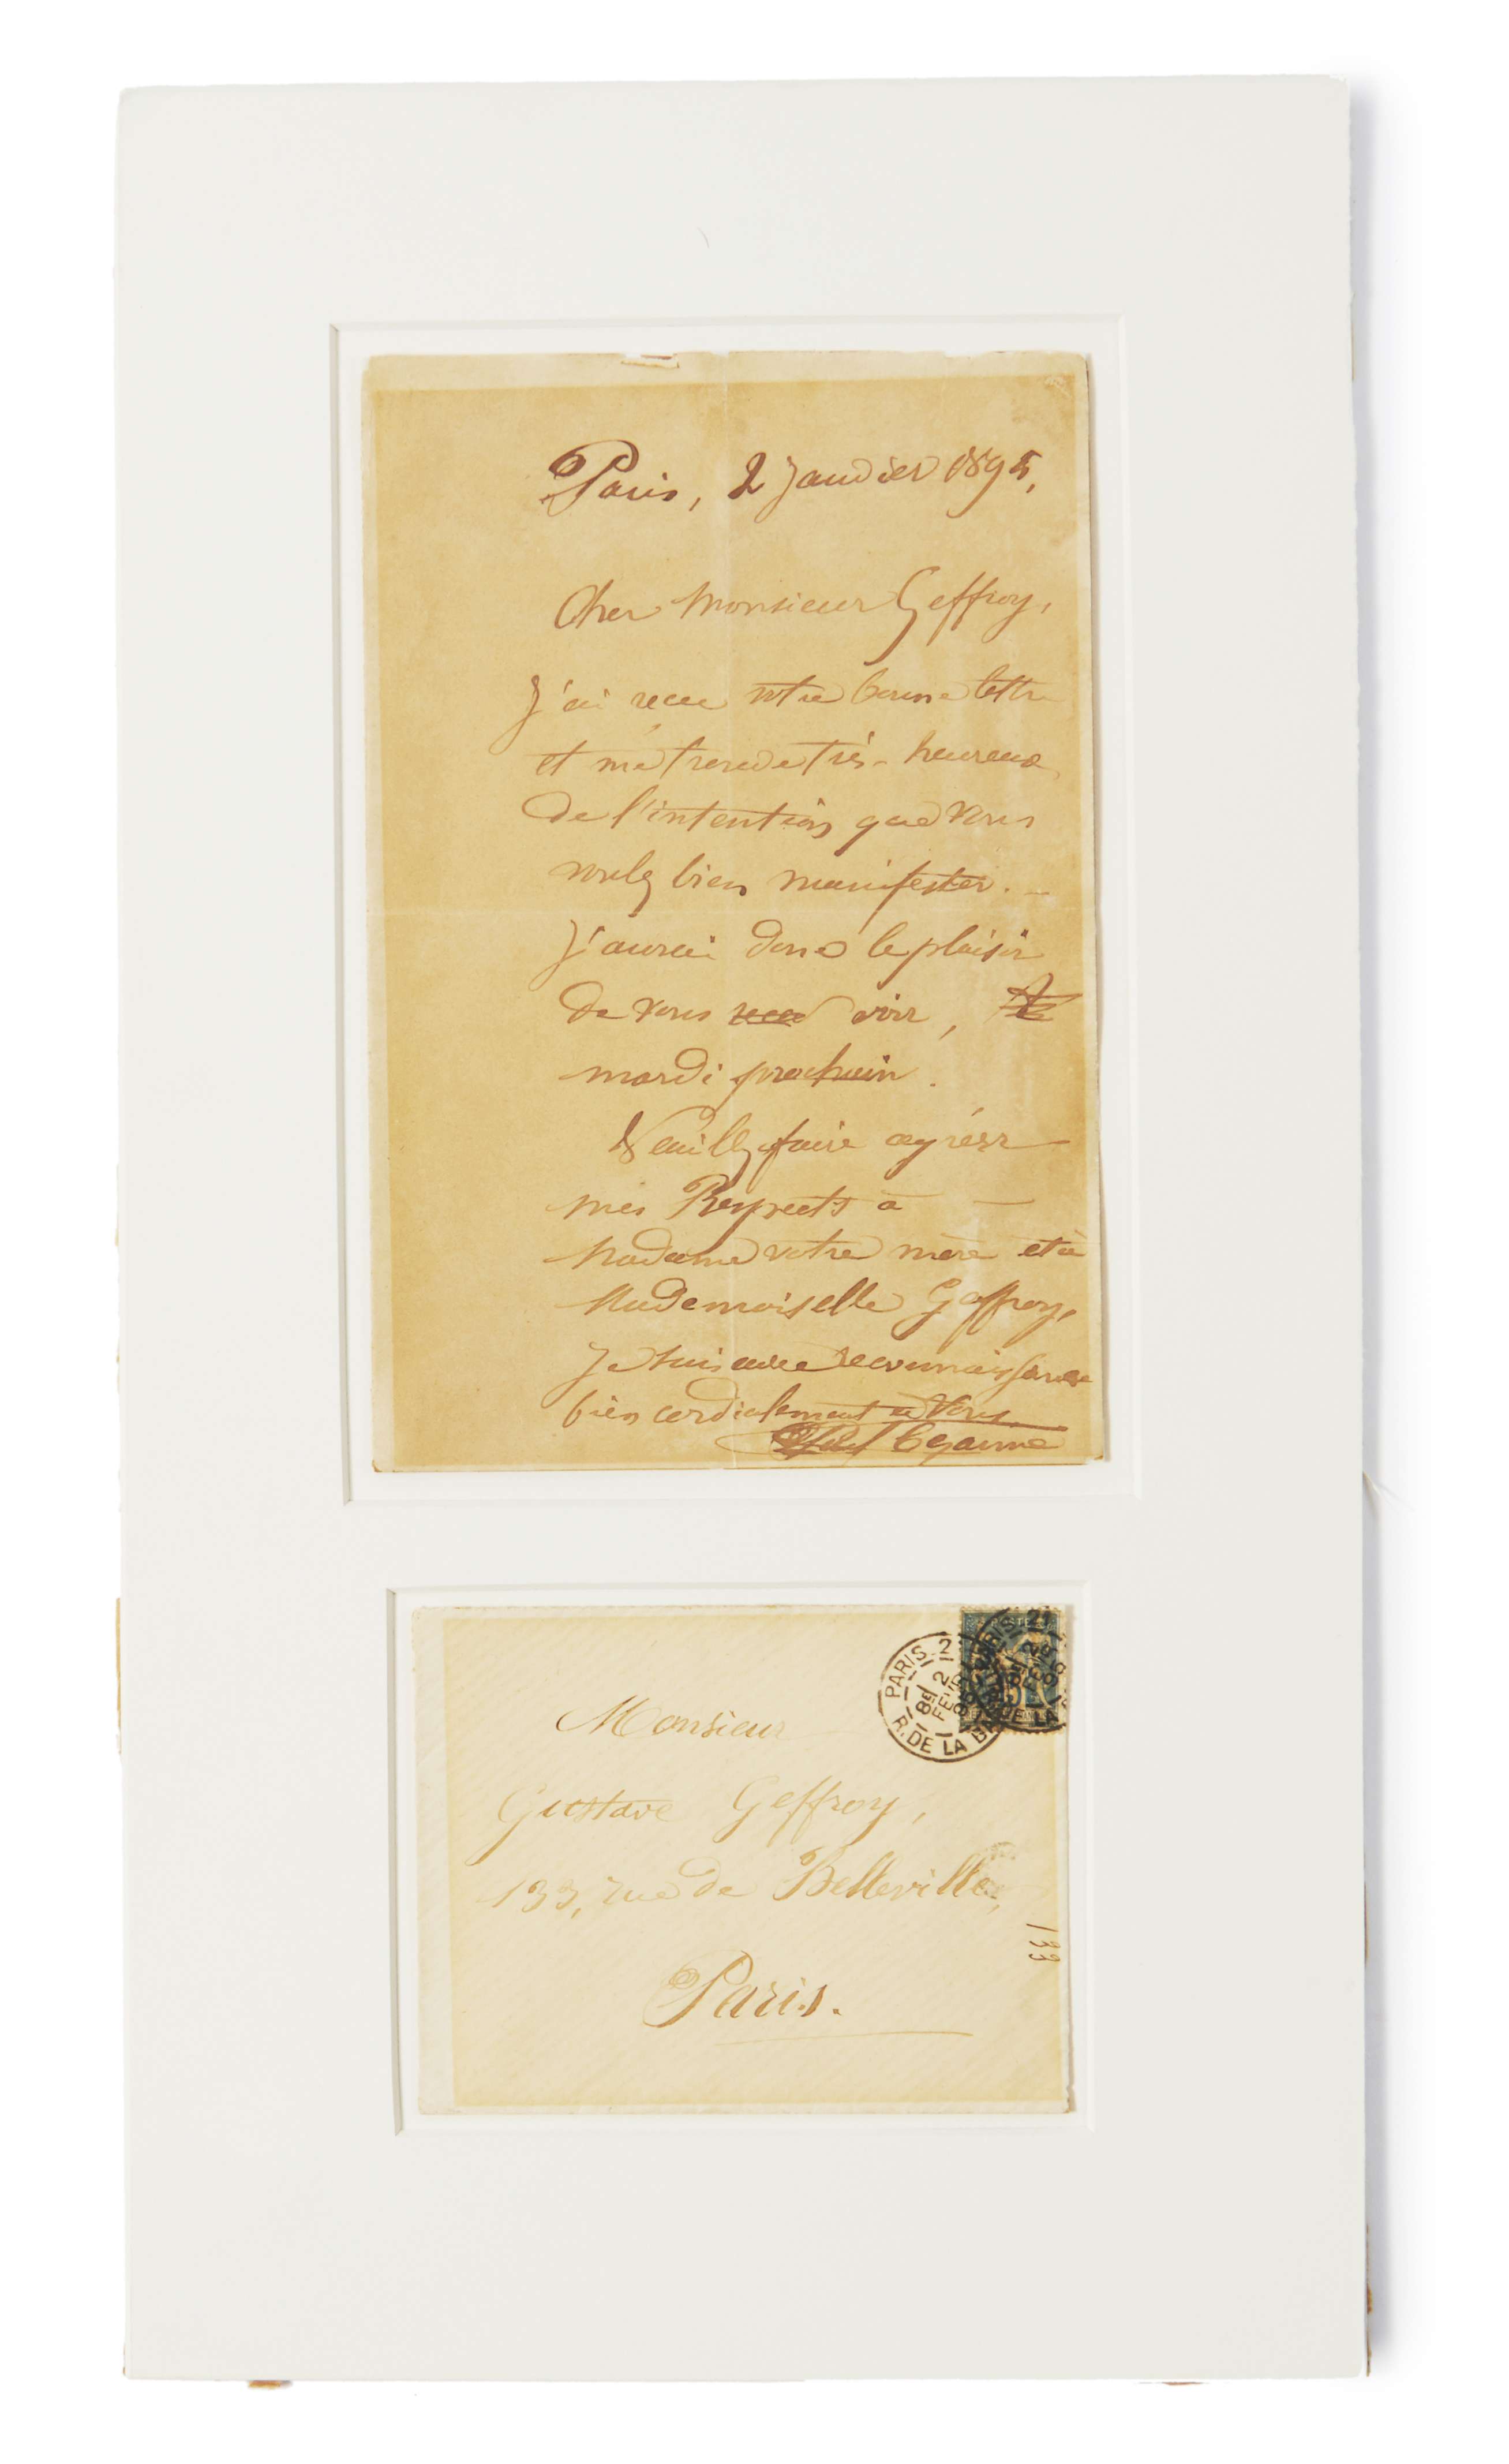 Paris, 2 Janvier 1895,
Cher Monsieur Geffroy,
J'ai reçu votre bonne lettre
et me trouve très-heureux
de l'intention que vous
voulez bien manifester. –
J'aurai donc le plaisir
de vous voir,
mardi prochain.
Veuillez faire agréer
mes Respects à –
Madame votre mère et à
Mademoiselle Geffroy,
Je suis avec reconnaissance
bien cordialement à vous.
Paul Cezanne
PARIS 21
8E 2
FEVR
95
R. DE LA BA
PARIS 21
2
FEVR
95
DE LA
POSTE
Monsieur
Gustave Geffroy,
133, rue de Belleville,
133
Paris.